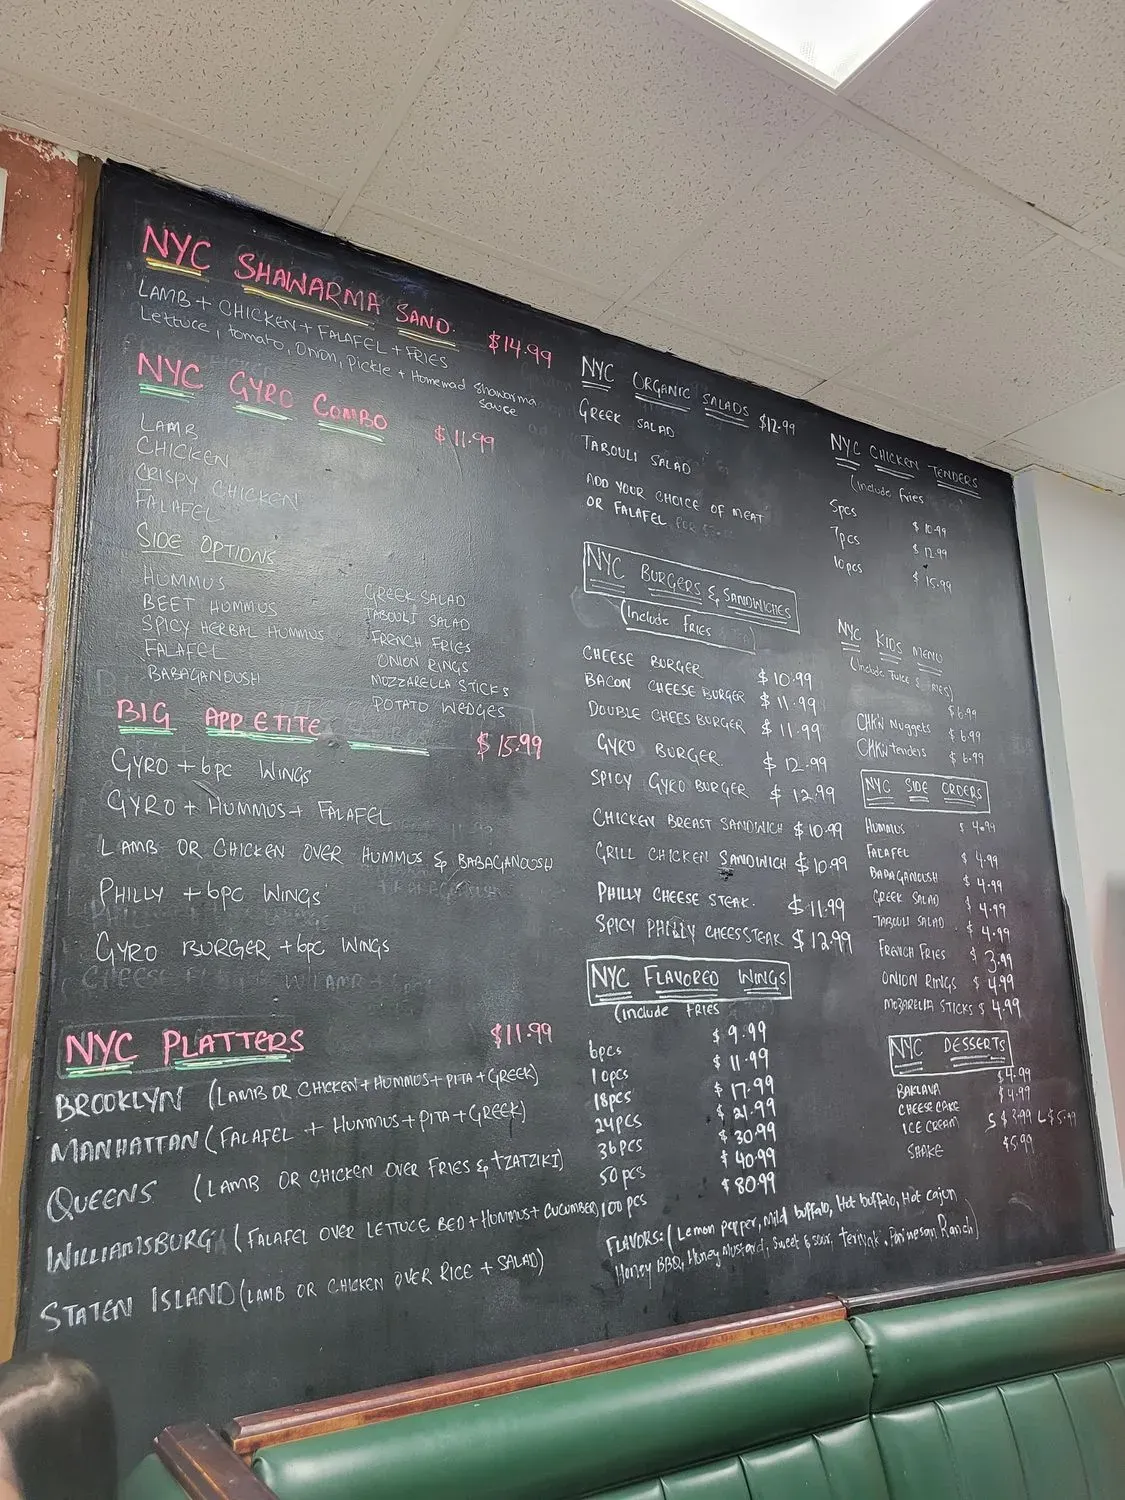 NYC SHAWARMA SAND. $14.99
LAMB + CHICKEN + FALAFEL + FRIES
Lettuce, tomato, Onion, Pickle + Homemad shawarma
sauce
NYC GYRO COMBO $11.99
LAMB
CHICKEN
CRISPY CHICKEN
FALAFEL
SIDE OPTIONS
HUMMUS
BEET HUMMUS
SPICY HERBAL HUMMUS
FALAFEL
BABAGANOUSH
GREEK SALAD
TABOULI SALAD
FRENCH FRIES
ONION RINGS
MOZZARELLA STICKS
POTATO WEDGES
BIG APPETITE $15.99
GYRO + 6pc WINGS
GYRO + HUMMUS + FALAFEL
LAMB OR CHICKEN OVER HUMMUS & BABAGANOUSH
PHILLY + 6pc WINGS
GYRO BURGER + 6pc WINGS
NYC PLATTERS $11.99
BROOKLYN (LAMB OR CHICKEN + HUMMUS + PITA + GREEK)
MANHATTAN (FALAFEL + HUMMUS + PITA + GREEK)
QUEENS (LAMB OR CHICKEN OVER FRIES & TZATZIKI)
WILLIAMSBURG (FALAFEL OVER LETTUCE BED + HUMMUS + CUCUMBER)
STATEN ISLAND (LAMB OR CHICKEN OVER RICE + SALAD)
NYC ORGANIC SALADS $12.99
GREEK SALAD
TABOULI SALAD
ADD YOUR CHOICE OF MEAT
OR FALAFEL FOR
NYC BURGERS & SANDWICHES
(Include FRIES
CHEESE BURGER $10.99
BACON CHEESE BURGER $11.99
DOUBLE CHEES BURGER $11.99
GYRO BURGER $12.99
SPICY GYRO BURGER $12.99
CHICKEN BREAST SANDWICH $10.99
GRILL CHICKEN SANDWICH $10.99
PHILLY CHEESE STEAK. $11.99
SPICY PHILLY CHEESSTEAK $12.99
NYC FLAVORED WINGS
(Include FRIES
6pcs $9.99
10pcs $11.99
18pcs $17.99
24pcs $21.99
36pcs $30.99
50pcs $40.99
100pcs $80.99
FLAVORS: (Lemon pepper, Mild buffalo, Hot buffalo, Hot cajun
Honey BBQ, Honey Mustard, Sweet & sour, teriyak, Parmesan Ranch)
NYC CHICKEN TENDERS
(Include Fries
5pcs $10.99
7pcs $12.99
10pcs $15.99
NYC KIDS MENU
(Include Juice & FRIES)
$6.99
CHKN Nuggets $6.99
CHKN tenders $6.99
NYC SIDE ORDERS
HUMMUS $4.99
FALAFEL $4.99
BABAGANOUSH $4.99
GREEK SALAD $4.99
TABOULI SALAD $4.99
FRENCH FRIES $3.99
ONION RINGS $4.99
MOZARELLA STICKS $4.99
NYC DESSERTS
BAKLAVA $4.99
CHEESE CAKE $4.99
ICE CREAM S $3.99 L $5.99
SHAKE $5.99